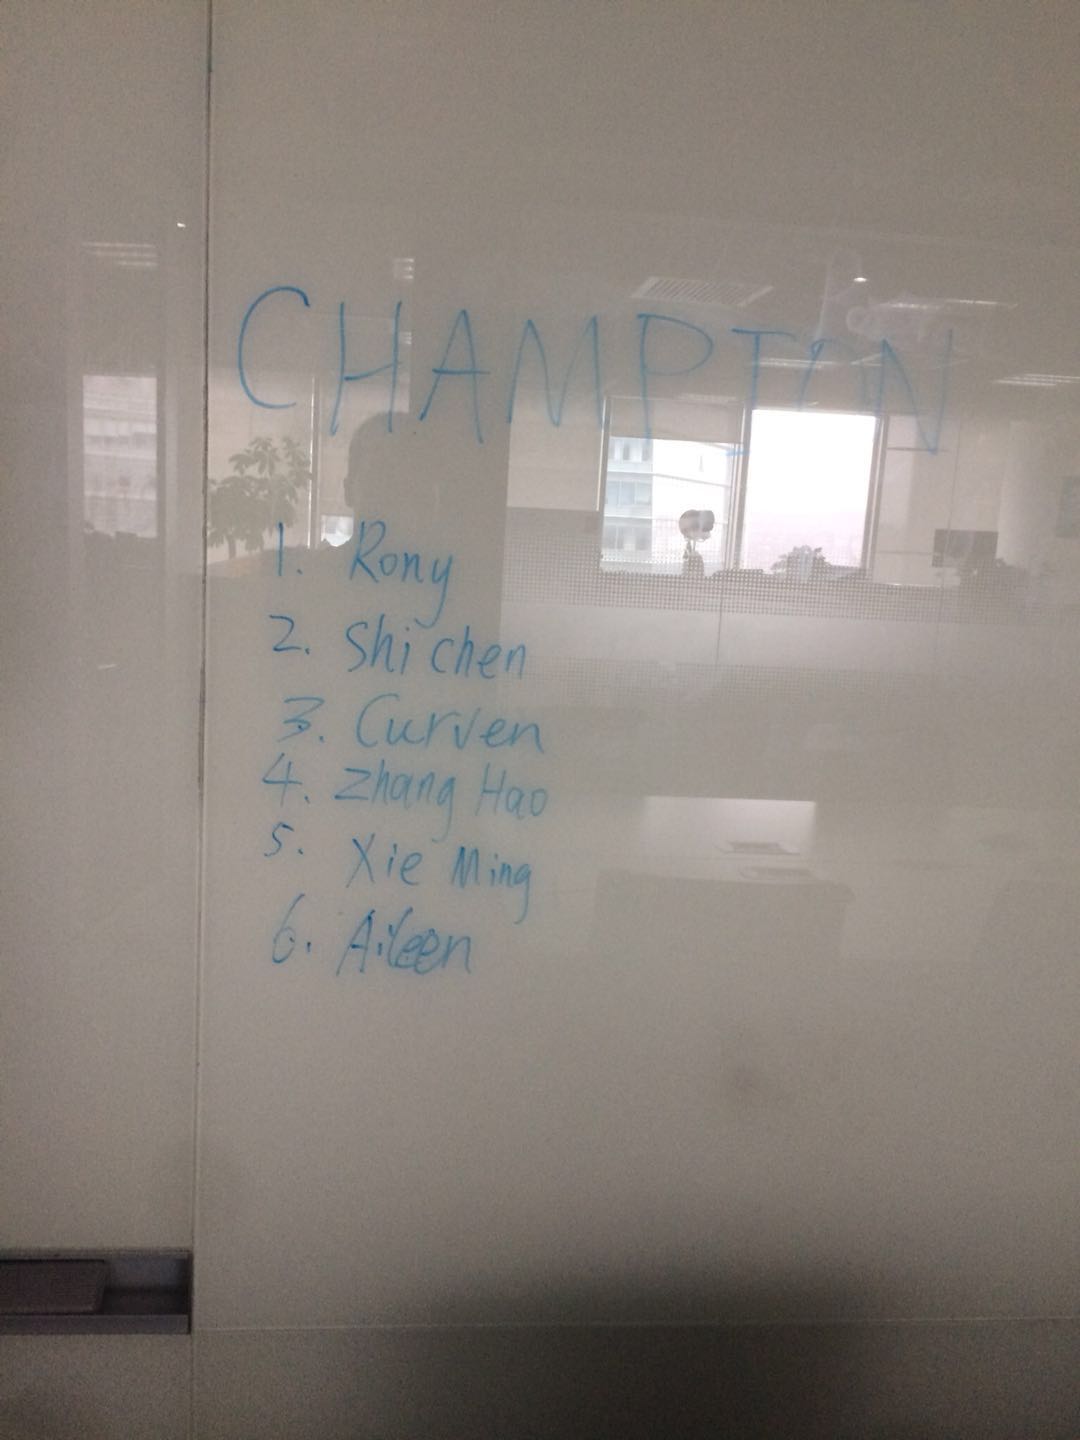 CHAMPION
1. Rony
2. Shi chen
3. Curven
4. Zhang Hao
5. Xie Ming
6. Aileen